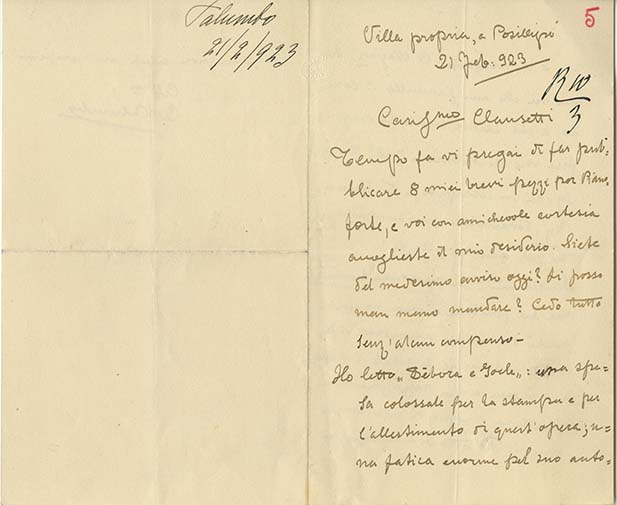 Palumbo
21/2/923
5
Villa propria, a Posillipo
21 Feb: 923
R 10/3
Carigmo Clausetti
Tempo fa vi pregai di far pub-
blicare 8 miei brevi pezzi per Piano-
forte, e voi con amichevole cortesia
accoglieste il mio desiderio. Siete
del medesimo avviso oggi? Li posso
man mano mandare? Cedo tutto
senz'alcun compenso -
Ho letto „Dèbora e Jaele„: una spe-
sa colossale per la stampa e per
l'allestimento di quest'opera; u-
na fatica enorme pel suo auto-